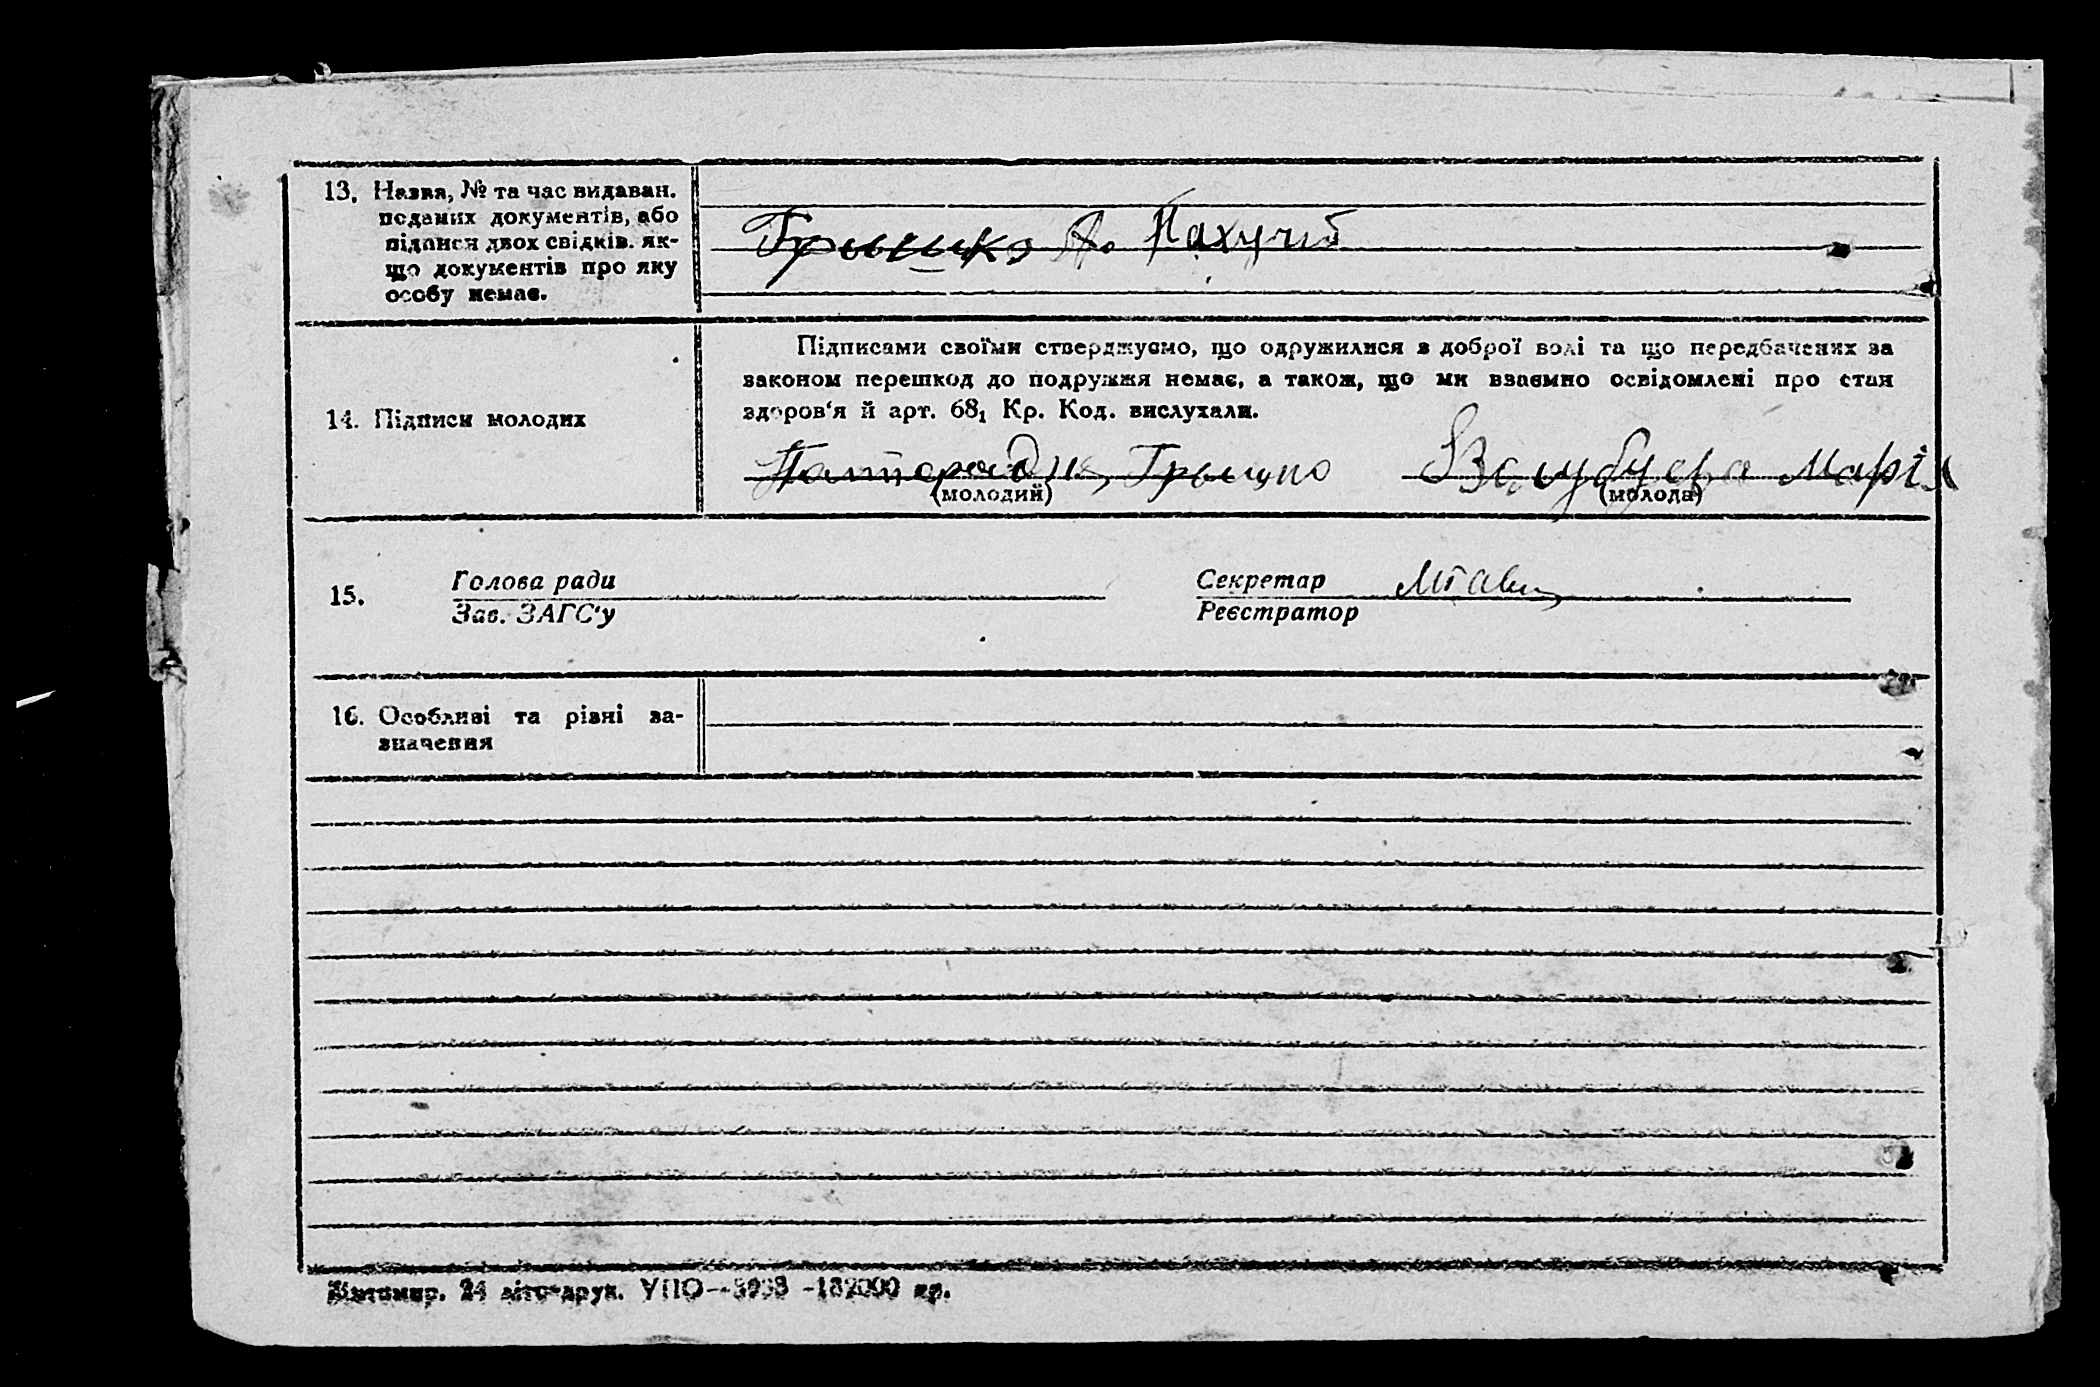 13. Назва, № та час видаван.
поданих документів, або
підписи двох свідків. як-
що документів про яку
особу немає.
Грышко А. Пахучий
Підписами своїми стверджуємо, що одружилися з доброї волі та що передбачених за
законом перешкод до подружжя немає, а також, що ми взаємно освідомлені про стан
здоров'я й арт. 68₁ Кр. Код. вислухали.
14. Підписи молодих
Грышко Марія
(молодий) (молода)
15. Голова ради Секретар
Зав. ЗАГС'у Реєстратор
16. Особливі та різні за-
значення
Житомир. 24 літо-друк. УПО